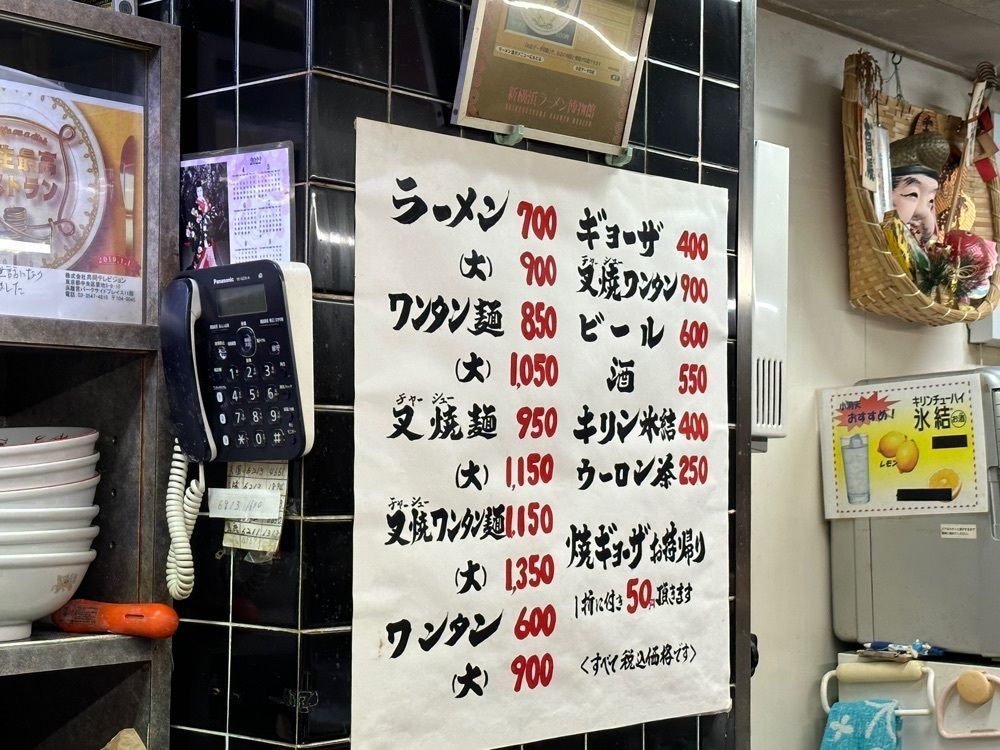 ラーメン 700
(大) 900
ワンタン麺 850
(大) 1,050
チャーシュー
叉焼麺 950
(大) 1,150
チャーシュー
叉焼ワンタン麺 1,150
(大) 1,350
ワンタン 600
(大) 900
ギョーザ 400
チャーシュー
叉焼ワンタン 900
ビール 600
酒 550
キリン氷結 400
ウーロン茶 250
焼ギョーザお持帰り
1折に付き50円頂きます
<すべて税込価格です>
新横浜ラーメン博物館
2022
Panasonic
株式会社共同テレビジョン
2019.1.1
小満天
おすすめ!
キリンチューハイ
氷結
お酒
レモン